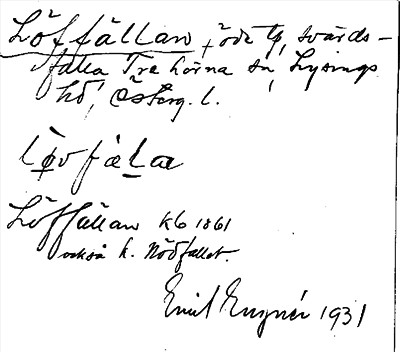 Löffällan, öde tp, svärds-
fälla Trehörna sn, Lysings
hd, Österg. l.
løvfäla
Löffällan kb 1861
också k. Nödfallet.
Emil Engnér 1931